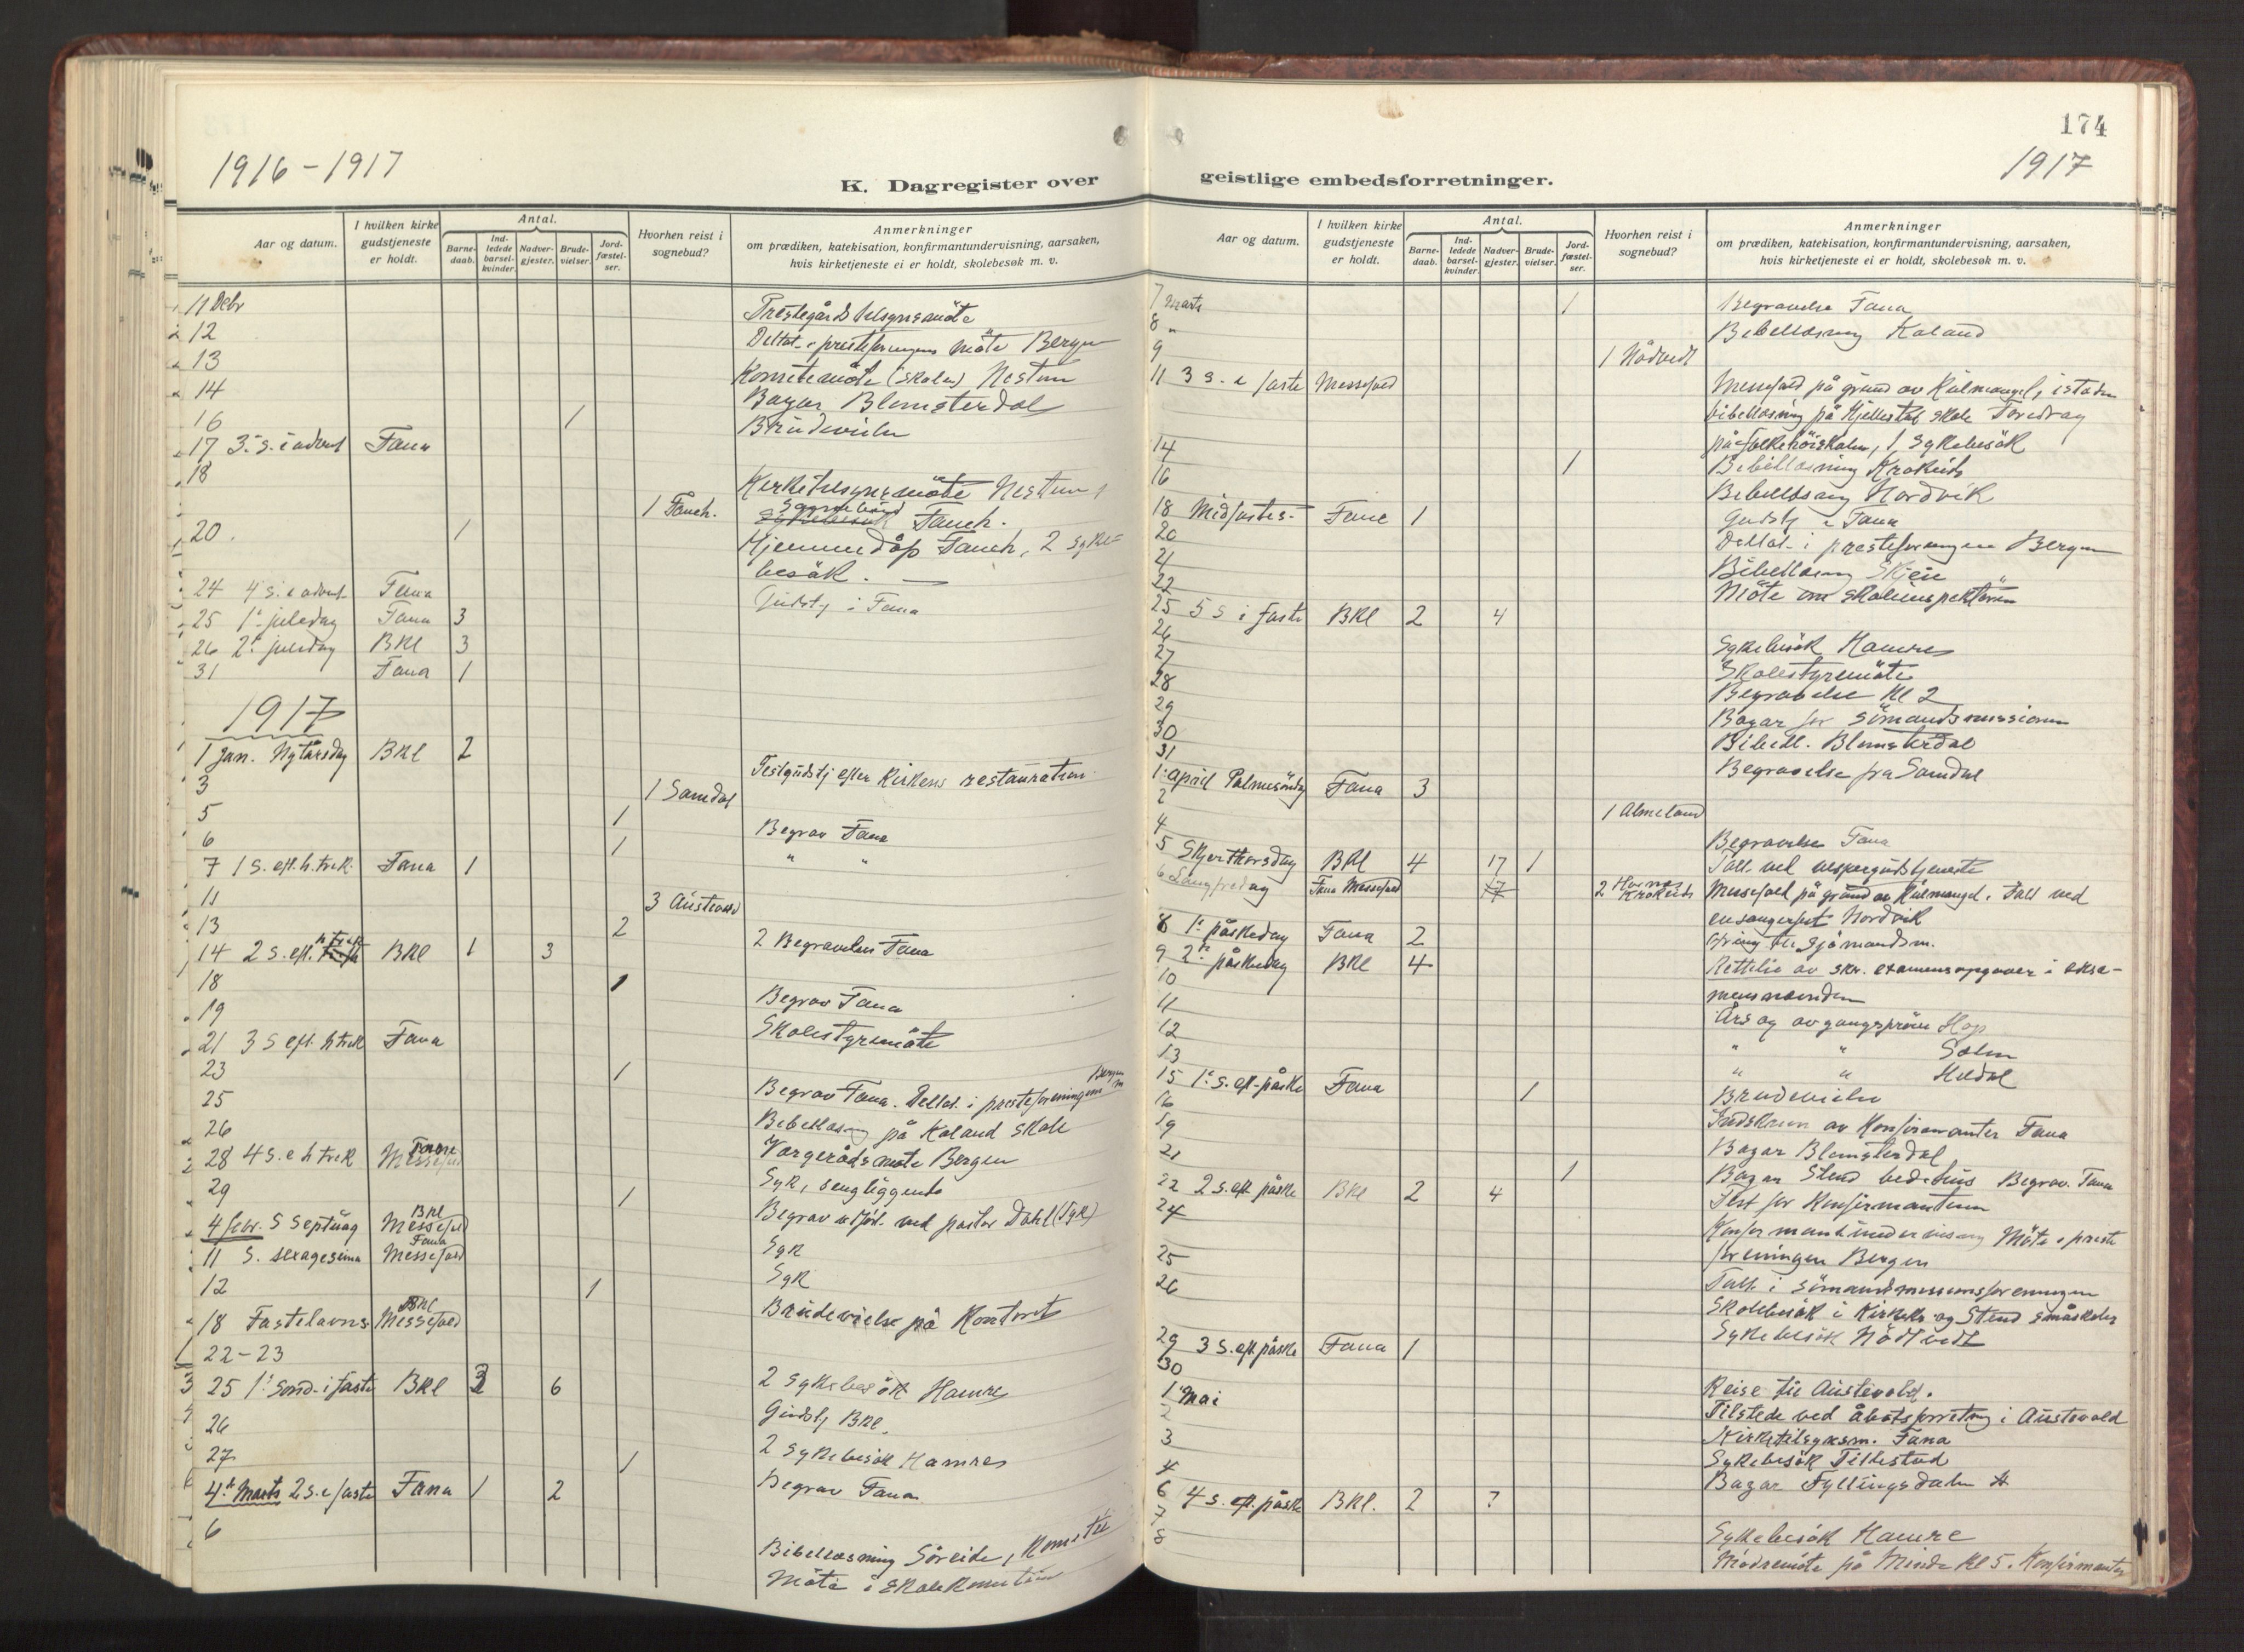 1916-1917
K. Dagregister over
Aar og datum.
I hvilken kirke gudstjeneste er holdt.
Antal.
Barne-daab.
Ind-ledede barsel-kvinder.
Nadver-gjester.
Brude-vielser.
Jord-fæstel-ser.
Hvorhen reist i sognebud?
Anmerkninger
om prædiken, katekisation, konfirmantundervisning, aarsaken,
hvis kirketjeneste ei er holdt, skolebesøk m. v.
11 Debr Prestegårds tilsynsmöte
12 Deltat i møte Bergen
13 Komitemöte (skolen) Nestun
14 Bazar Blomsterdal
16 1 Brudevielse
17 3. s. i advent Fana
18 Kirketilsynsmöte Nestun
1 Faneh. Sognebud Faneh.
20. 1 Hjemmedåp Faneh, 2 syke=
besök. —
24 4 s. i advent Fana Gudstj i Fana
25 1. juledag Fana 3
26 2. juledag BKl 3
31 Fana 1
1917
1 Jan. Nytårsdag BKl 2
3 1 Samdal Festgudstj efter Kirkens restauration.
5 1
6 1 Begrav Fana
7 1 S. eft. h. trek. Fana 1 " "
11 3 Austevold
13 2
14 2 s. eft. h trek BKl 1 3 2 Begravelser Fana
18 1
19 Begrav Fana
21 3 S eft. h trek Fana Skolestyremöte
23 1
25 Begrav Fana. Deltat i presteforeningens m Bergen
26 Bibellæsning på Kaland skole
28 4 s. e h trek Fana Messefald Vergerådsmöte Bergen
29 1 Syk, sengliggende
4 febr. S Septuag BKl Messefald Begrav ved pastor Dahl (Syk)
11 S. sexagesima Fana Messefald Syk
12 1 Syk
18 Fastelavns BKl Messefald Brudevielse på Kontoret
22-23
25 1. sönd. i faste BKl 3 6 2 sykebesök Hamre
26 Gudstj BKl.
27 1 2 Sykebesök Hamre
4. Marts 2 s. i faste Fana 1 2 Begrav Fana
6
Bibellæsning Söreide, Komite
Möte i skolekomiteen
174
1917
geistlige embedsforretninger.
Aar og datum.
I hvilken kirke gudstjeneste er holdt.
Antal.
Barne-daab.
Ind-ledede barsel-kvinder.
Nadver-gjester.
Brude-vielser.
Jord-fæstel-ser.
Hvorhen reist i sognebud?
Anmerkninger
om prædiken, katekisation, konfirmantundervisning, aarsaken,
hvis kirketjeneste ei er holdt, skolebesøk m. v.
7 Marts 1 Begravelse Fana
8 " Bibellæsning Kaland
9 1 Nådvedt
11 3 s. i faste Messefald Messefald på grund av Kulmangel, istaden
bibellæsning på Hjellestad skole Foredrag
på folkehöiskolen, 1 Sykebesök
14 1 Bibellæsning Krokeide
16 Bibellæsning Hordvik
18 Midfastes- Fane 1 Gudstj i Fana
20 Deltat i presteforeningen Bergen
21 Bibellæsning Skjeie
22 Möte om skoleinspektören
25 5 s i faste BKl 2 4
26 Sykebesök Hamre
27 Skolestyremöte
28 Begravelse Kl 2
29 Bazar for Sömandsmissionen
30 Bibell. Blomsterdal
31 Begravelse fra Samdal
1. april Palmesöndag Fana 3
2 1 Almeland
4 Begravelse Fana
5 Skjerthorsdag BKl 4 17 1 Talt ved aftengudstjeneste
6 Langfredag Fana Messefald 17 2 Krokeide Messefald på grund av Kulmangel. Talt ved
en sangerfest Hordvik
8 1. påskedag Fana 2 ofring til Sjömandsm.
9 2. påskedag BKl 4 Rettelse av skr. examensopgaver i eksa-
10 mensnævnden
11 Års og avgangsprøve Hop
12 " " Solen
13 " "
15 1. s. eft. påske Fana 1 Brudevielse
16 Indskrivn av Konfirmanter Fana
19 Bazar Blomsterdal
21 1 Bazar Stend bedehus Begrav. Fana
22 2 s. eft. påske BKl 2 4 Fest for Konfirmanterne
24 Konfirmantundervisning Möte i preste
foreningen Bergen
25 Talt i Sömandsmissionsforeningen
26 Skolebesök i Kirkek. og Stend småskoler
Sykebesök Nödtvedt
29 3 s. eft. påske Fana 1
30 Reise til Austevold.
1. Mai Tilstede ved åbotsforretning i Austevold
2 Kirketilsynsm. Fana
3 Sykebesök Titlestad
4 Bazar Fyllingsdalen
6 4 s. eft. påske BKl. 2 7
7 Sykebesök Hamre
8 Mödremöte på Minde Kl 5. Konfirmanter